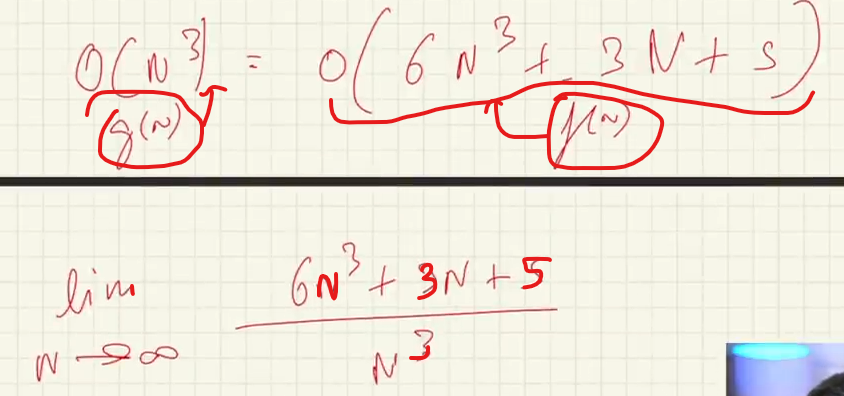 O(N³) = O(6N³ + 3N + 5)
g(N) f(N)
lim 6N³ + 3N + 5
N→∞ N³